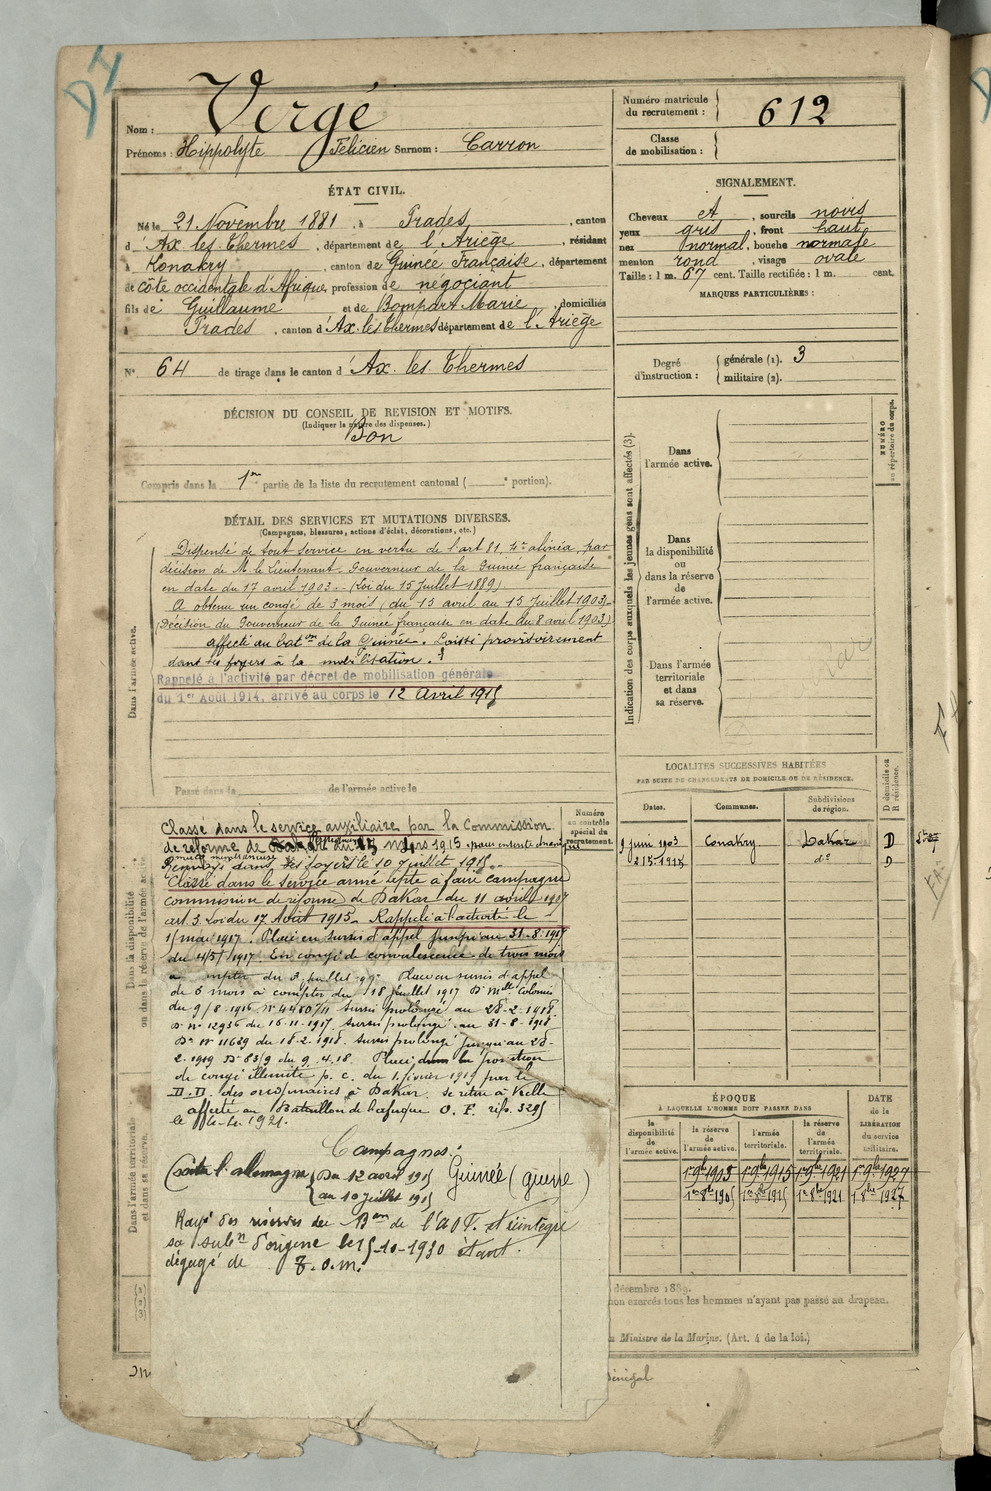 Nom : Vergé
Prénoms : Hippolyte Félicien Surnom : Carron
Numéro matricule du recrutement : 612
Classe de mobilisation :
ÉTAT CIVIL.
Né le 21 Novembre 1881, à Prades, canton
d'Ax les Thermes, département de l'Ariège, résidant
à Konakry, canton de Guinée Française, département
de côte occidentale d'Afrique, profession de négociant
fils de Guillaume et de Bompart Marie, domiciliés
à Prades, canton d'Ax les Thermes département de l'Ariège
N° 64 de tirage dans le canton d'Ax les Thermes
SIGNALEMENT.
Cheveux et, sourcils noirs
yeux gris, front haut
nez normal, bouche normale
menton rond, visage ovale
Taille : 1 m. 67 cent. Taille rectifiée : 1 m. cent.
MARQUES PARTICULIÈRES :
Degré d'instruction : générale (1). 3
militaire (2).
DÉCISION DU CONSEIL DE REVISION ET MOTIFS.
(Indiquer la nature des dispenses.)
Bon
Compris dans la 1re partie de la liste du recrutement cantonal ( e portion).
DÉTAIL DES SERVICES ET MUTATIONS DIVERSES.
(Campagnes, blessures, actions d'éclat, décorations, etc.)
Dispensé de tout service en vertu de l'art 81, 4e alinéa, par
décision de M. le Lieutenant-Gouverneur de la Guinée française
en date du 17 avril 1903. - (Loi du 15 Juillet 1889)
A obtenu un congé de 3 mois (du 15 avril au 15 Juillet 1903)
(Décision du Gouverneur de la Guinée française en date du 8 avril 1903)
affecté au baton de la Guinée. Laissé provisoirement
dans ses foyers à la mobilisation.
Rappelé à l'activité par décret de mobilisation générale
du 1er Août 1914, arrivé au corps le 12 Avril 1915
Passé dans la de l'armée active le
Dans l'armée active.
Dans la disponibilité ou dans la réserve de l'armée active
Dans l'armée territoriale et dans sa réserve.
Indication des corps auxquels les jeunes gens sont affectés (3).
NUMÉRO au répertoire du corps.
Dans l'armée active.
Dans la disponibilité ou dans la réserve de l'armée active.
Dans l'armée territoriale et dans sa réserve.
LOCALITÉS SUCCESSIVES HABITÉES
PAR SUITE DE CHANGEMENTS DE DOMICILE OU DE RÉSIDENCE.
Dates. Communes. Subdivisions de région. D domicile ou R résidence.
9 juin 1903 Conakry Dakar D
do D
Numéro au contrôle spécial du recrutement.
Classé dans le service auxiliaire par la Commission
de réforme de mars 1915 pour
dans ses foyers le 10 juillet 1915.
Classé dans le service armé apte à faire campagne
commission de réforme de Dakar du 11 avril 1917
art. 3 Loi du 17 Août 1915. Rappelé à l'activité le
1 mai 1917. Placé en sursis d'appel jusqu'au 31-8-1917
du 14/5/1917. En congé de convalescence de trois mois
à compter du 3 juillet Placé en sursis d'appel
de 6 mois à compter du 18 juillet 1917 Don Mlle Colonies
du 9/8-1916 N° 4480/11 sursis prolongé au 28-2-1918.
Don N° 12936 du 16-11-1917 sursis prolongé au 31-8-1918
Don N° 11629 du 18-2-1918. sursis prolongé jusqu'au 28-
2-1919 Don 83/9 du 9.4.18. Placé dans la position
de congé illimité p. c. du 1 février 1919 par le
D.D. des à Dakar se retire à
affecté au Bataillon de l'afrique O. F.
Campagnes:
Contre l'allemagne Du 12 avril 1915
au 10 juillet 1915 Guinée (guerre)
Rayé des réserves du Bon de l'AOF. et réintègre
sa subon d'origine le 15-10-1930 étant
dégagé de T.O.M.
ÉPOQUE
À LAQUELLE L'HOMME DOIT PASSER DANS
DATE de la LIBÉRATION du service militaire.
la disponibilité de l'armée active. la réserve de l'armée active. l'armée territoriale. la réserve de l'armée territoriale.
1er 9bre 1905 1er 9bre 1915 1er 9bre 1921 1er 9bre 1927
1er 8bre 1905 1er 8bre 1915 1er 8bre 1921 1er 8bre 1927
décembre 1889.
non exercés tous les hommes n'ayant pas passé au drapeau.
Ministre de la Marine. (Art. 4 de la loi.)
Sénégal